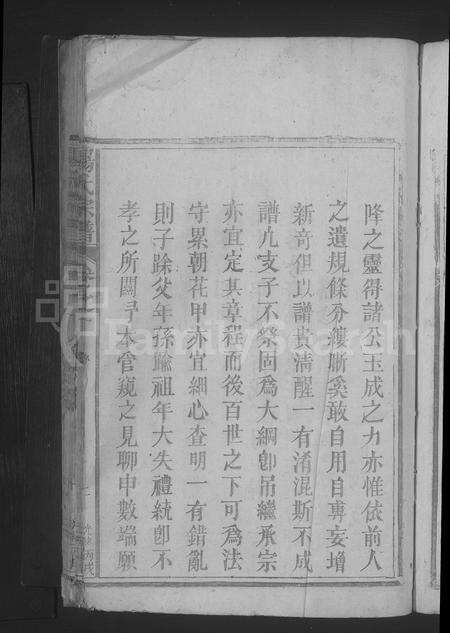 降之靈得諸公玉成之力亦惟依前人
之遺規條分縷晰奚敢自用自專妄增
新奇但以譜貴淸醒一有淆混斯不成
譜凡支子不祭固爲大綱卽吊繼承宗
亦宜定其章程而後百世之下可爲法
守累朝花甲亦宜細心查明一有錯亂
則子踰父年孫踰祖年大失禮統卽不
孝之所關尋本管窺之見聊申數端願
氏宗譜
FamilySearch